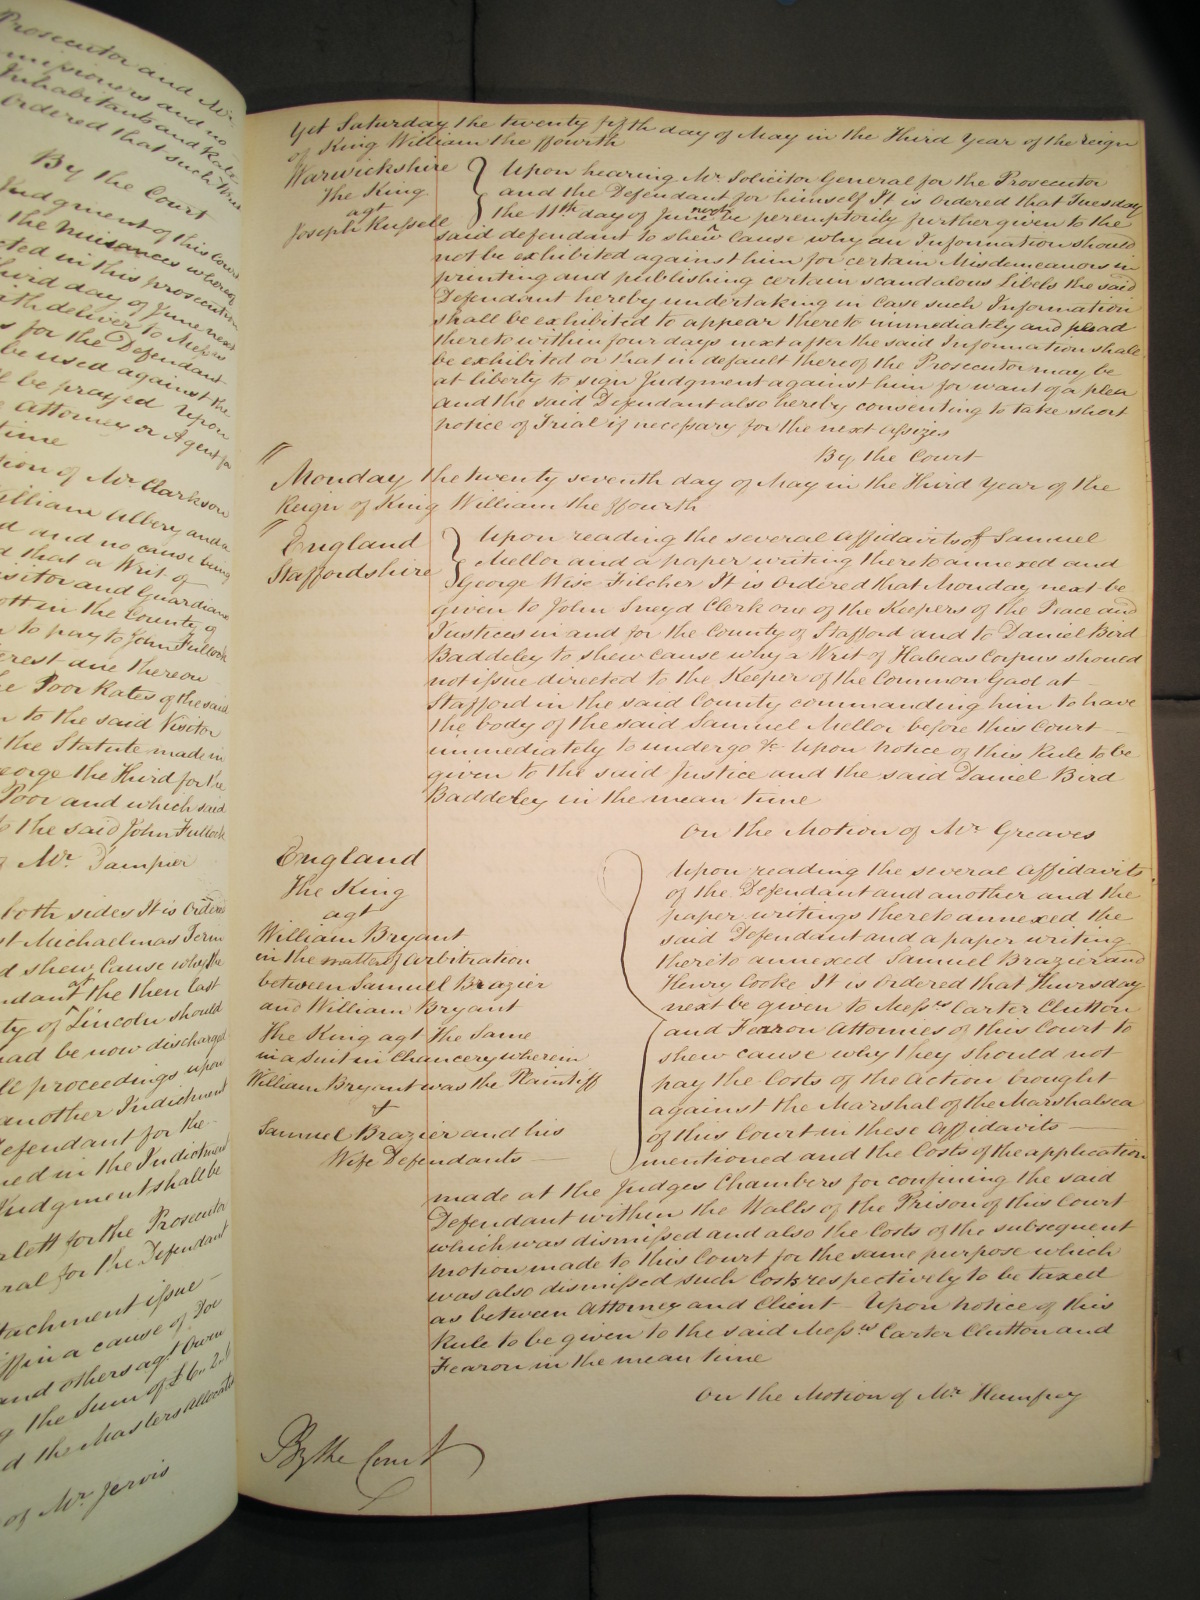 Prosecutor and Mr
missioners and no
Inhabitants and Rate
Ordered that such Writ
By the Court
Judgment of this Court
the Nuisances whereof
cted in this prosecution
third day of June next
ith deliver to Messrs
s for the Defendant
be used against the
ll be prayed Upon
e Attorney or Agent for
time
tion of Mr Clarkson
William Albery and a
d and no cause being
d that a Writ of
isitor and Guardians
ott in the County of
n to pay to John Fullock
erest due thereon
he Poor Rates of the said
n to the said Visitor
the Statute made in
eorge the Third for the
Poor and which said
to the said John Fullock
of Mr Dampier
both sides It is Ordered
st Michaelmas Term
d shew Cause why the
ndant at the then last
ty of Lincoln should
had be now discharged
ll proceedings upon
another Indictment
Defendant for the
ned in the Indictment
Judgment shall be
rlett for the Prosecutor
ral for the Defendant
tachment issue
iff in a cause of Doe
and others agt Owen
g the Sum of £6..2..
d the Masters Allocatur
of Mr Jervis
Yet Saturday the twenty fifth day of May in the Third Year of the Reign
of King William the ffourth
Warwickshire
The King
agt
Joseph Russell
Upon hearing Mr Solicitor General for the Prosecutor
and the Defendant for himself It is Ordered that Tuesday
the 11th day of June next be peremptorily further given to the
said defendant to shew Cause why an Information should
not be exhibited against him for certain Misdemeanors in
printing and publishing certain scandalous Libels the said
Defendant hereby undertaking in Case such Information
shall be exhibited to appear thereto immediately and plead
thereto within four days next after the said Information shall
be exhibited or that in default thereof the Prosecutor may be
at liberty to sign Judgment against him for want of a plea
and the said Defendant also hereby consenting to take short
notice of Trial if necessary for the next Assizes
By the Court
Monday the twenty seventh day of May in the Third Year of the
Reign of King William the ffourth
England
Staffordshire
Upon reading the several Affidavits of Samuel
Mellor and a paper writing thereto annexed and
George Wise Pilcher It is Ordered that Monday next be
given to John Sneyd Clerk one of the Keepers of the Peace and
Justices in and for the County of Stafford and to Daniel Bird
Baddeley to shew cause why a Writ of Habeas Corpus should
not issue directed to the Keeper of the Common Gaol at
Stafford in the said County commanding him to have
the body of the said Samuel Mellor before this Court
immediately to undergo &c Upon Notice of this Rule to be
given to the said Justice and the said Daniel Bird
Baddeley in the mean time
On the Motion of Mr Greaves
England
The King
agt
William Bryant
in the matter of Arbitration
between Samuel Brazier
and William Bryant
The King agt the Same
in a Suit in Chancery wherein
William Bryant was the Plaintiff
&
Samuel Brazier and his
Wife Defendants
Upon reading the several Affidavits
of the Defendant and another and the
paper writings thereto annexed the
said Defendant and a paper writing
thereto annexed Samuel Brazier and
Henry Cooke It is Ordered that Thursday
next be given to Messrs Carter Clutton
and Fearon Attornies of this Court to
shew cause why they should not
pay the Costs of the Action brought
against the Marshal of the Marshalsea
of this Court in these Affidavits
mentioned and the Costs of the application
made at the Judges Chambers for confining the said
Defendant within the Walls of the Prison of this Court
which was dismissed and also the Costs of the subsequent
Motion made to this Court for the same purpose which
was also dismissed such Costs respectively to be taxed
as between Attorney and Client Upon Notice of this
Rule to be given to the said Messrs Carter Clutton and
Fearon in the mean time
On the Motion of Mr Humfrey
By the Court